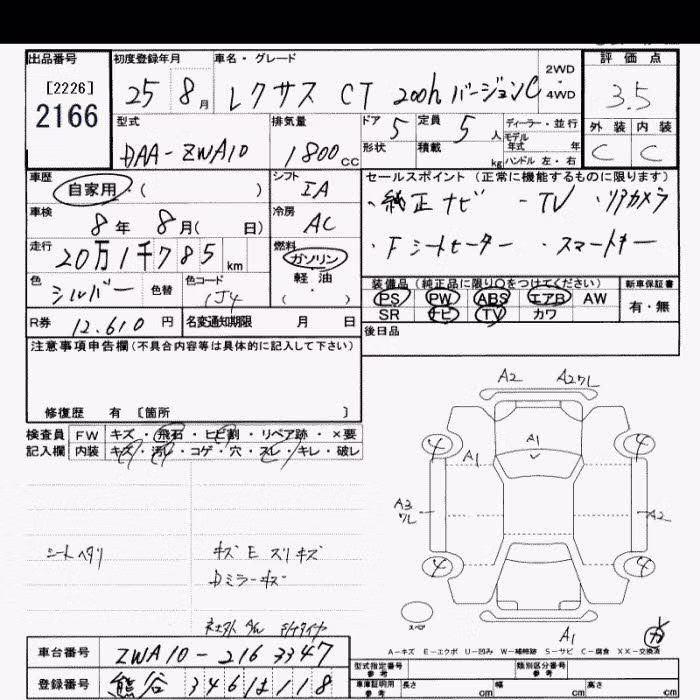 出品番号 初度登録年月 車名・グレード 評価点
[2226] 25 8月 レクサス CT 200h バージョンC 2WD・4WD 3.5
2166
型式 排気量 ドア 定員 ディーラー・並行 外装 内装
DAA-ZWA10 1800cc 5 5人 モデル年式 年 C C
形状 積載 kg ハンドル 左・右
車歴 シフト セールスポイント(正常に機能するものに限ります)
自家用・( ) IA ・純正ナビ ・TV ・リアカメラ
車検 冷房
8年 8月( 日) AC ・Fシートヒーター ・スマートキー
走行 燃料
20万1千785km ガソリン
軽油
・
( )
色 色替 色コード 装備品(純正品に限り○をつけてください) 新車保証書
シルバー 1J4 PS PW ABS エアB AW 有・無
SR ナビ TV カワ
R券 12,610円 名変通知期限 月 日 後日品
注意事項申告欄(不具合内容等は具体的に記入して下さい)
修復歴 有 [箇所 ]
検査員 FW キズ・飛石・ヒビ割・リペア跡・×要
記入欄 内装 キズ・汚れ・コゲ・穴・スレ・キレ・破レ
A2 A2ワレ
4 A1 4
A1
A3
ワレ A2
4 4
スペア A1
シートヘタリ キズ E スリキズ
ミラーキズ
A-キズ E-エクボ U-凹み W-補修跡 S-サビ C-腐食 XX-交換済
車台番号 ZWA10-2163347
型式指定番号 参考 類別区分番号 参考
登録番号 熊谷 346 は 118
車庫証明用 参考 長さ cm 幅 cm 高さ cm